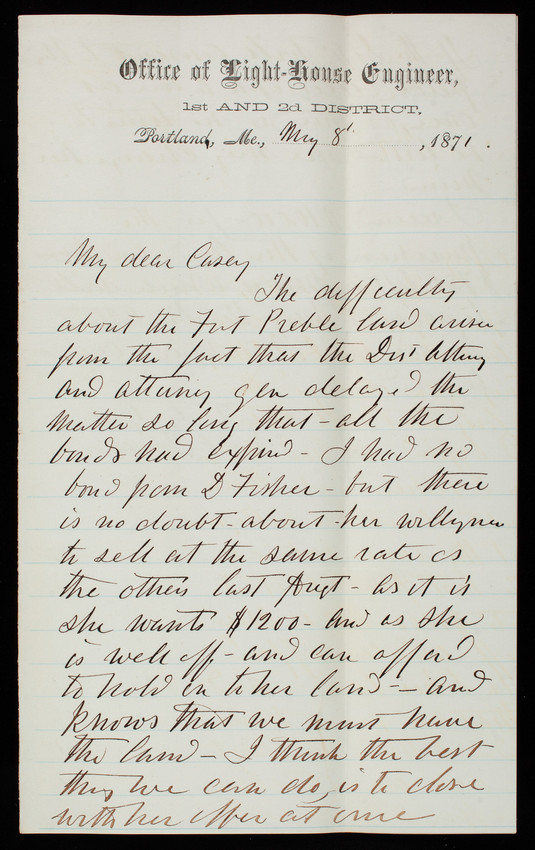 Office of Light-House Engineer,
1st AND 2d DISTRICT.
Portland, Me., May 8th, 1871.
My dear Casey
The difficulty
about the Fort Preble land arises
from the fact that the Dist Attorney
and attorney gen delayed the
matter so long that - all the
bonds had expired - I had no
bond from D Fisher - but there
is no doubt - about her willingness
to sell at the same rate as
the others last Augt - as it is
she wants $1200 - and as she
is well off - and can afford
to hold on to her land - and
knows that we must have
the land - I think the best
thing we can do, is to close
with her offer at once